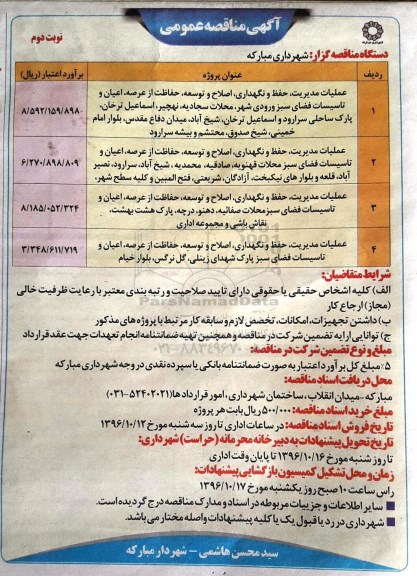 آگهی مناقصه عمومی
نوبت دوم
دستگاه مناقصه گزار: شهرداری مبارکه
ردیف
عنوان پروژه
برآورد اعتبار (ریال)
۱
عملیات مدیریت، حفظ و نگهداری، اصلاح و توسعه، حفاظت از عرصه، اعیان و
تاسیسات فضای سبز ورودی شهر، محلات سجادیه، نهچیر، اسماعیل ترخان،
پارک ساحلی سرارود و اسماعیل ترخان، شیخ آباد، میدان دفاع مقدس، بلوار امام
خمینی، شیخ صدوق، محتشم و بیشه سرارود
۸/۵۹۲/۱۵۹/۸۹۸
۲
عملیات مدیریت، حفظ و نگهداری، اصلاح و توسعه، حفاظت از عرصه، اعیان و
تاسیسات فضای سبز محلات قهنویه، صادقیه، محمدیه، شیخ آباد، سرارود، نصیر
آباد، قلعه و بلوار های نیکبخت، آزادگان، شریعتی، فتح المبین و کلیه سطح شهر،
۶/۲۷۰/۸۹۸/۸۰۹
۳
عملیات مدیریت، حفظ و نگهداری، اصلاح و توسعه، حفاظت از عرصه، اعیان و
تاسیسات فضای سبز محلات صفائیه، دهنو، درچه، پارک هشت بهشت،
نقاش باشی و مجموعه اداری
۸/۱۸۵/۰۵۲/۳۲۴
۴
عملیات مدیریت، حفظ و نگهداری، اصلاح و توسعه، حفاظت از عرصه، اعیان و
تاسیسات فضای سبز پارک شهدای زینلی، گل نرگس، بلوار خیام
۳/۳۴۸/۶۱۱/۷۱۹
شرایط متقاضیان:
الف) کلیه اشخاص حقیقی یا حقوقی دارای تایید صلاحیت و رتبه بندی معتبر با رعایت ظرفیت خالی
(مجاز) ارجاع کار
ب) داشتن تجهیزات، امکانات، تخصص لازم و سابقه کار مرتبط با پروژه های مذکور
ج) توانایی ارایه تضمین شرکت در مناقصه و همچنین تهیه ضمانتنامه انجام تعهدات جهت عقد قرارداد
مبلغ و نوع تضمین شرکت در مناقصه:
۵٪ مبلغ کل برآورد اعتبار به صورت ضمانتنامه بانکی یا سپرده نقدی در وجه شهرداری مبارکه
محل دریافت اسناد مناقصه:
مبارکه -میدان انقلاب، ساختمان شهرداری، امور قراردادها (۵۲۴۰۲۰۲۱-۰۳۱)
مبلغ خرید اسناد مناقصه: ۵۰۰/۰۰۰ ریال بابت هر پروژه
تاریخ فروش اسناد مناقصه: در ساعات اداری تا روز سه شنبه مورخ ۱۳۹۶/۱۰/۱۲
تاریخ تحویل پیشنهادات به دبیر خانه محرمانه (حراست) شهرداری:
تا روز شنبه مورخ ۱۳۹۶/۱۰/۱۶ تا پایان وقت اداری
زمان و محل تشکیل کمیسیون بازگشایی پیشنهادات:
راس ساعت ۱۰ صبح روز یکشنبه مورخ ۱۳۹۶/۱۰/۱۷
سایر اطلاعات و جزییات مربوطه در اسناد و مدارک مناقصه درج گردیده است.
شهرداری در رد یا قبول یک یا کلیه پیشنهادات واصله مختار می باشد.
سید محسن هاشمی - شهردار مبارکه